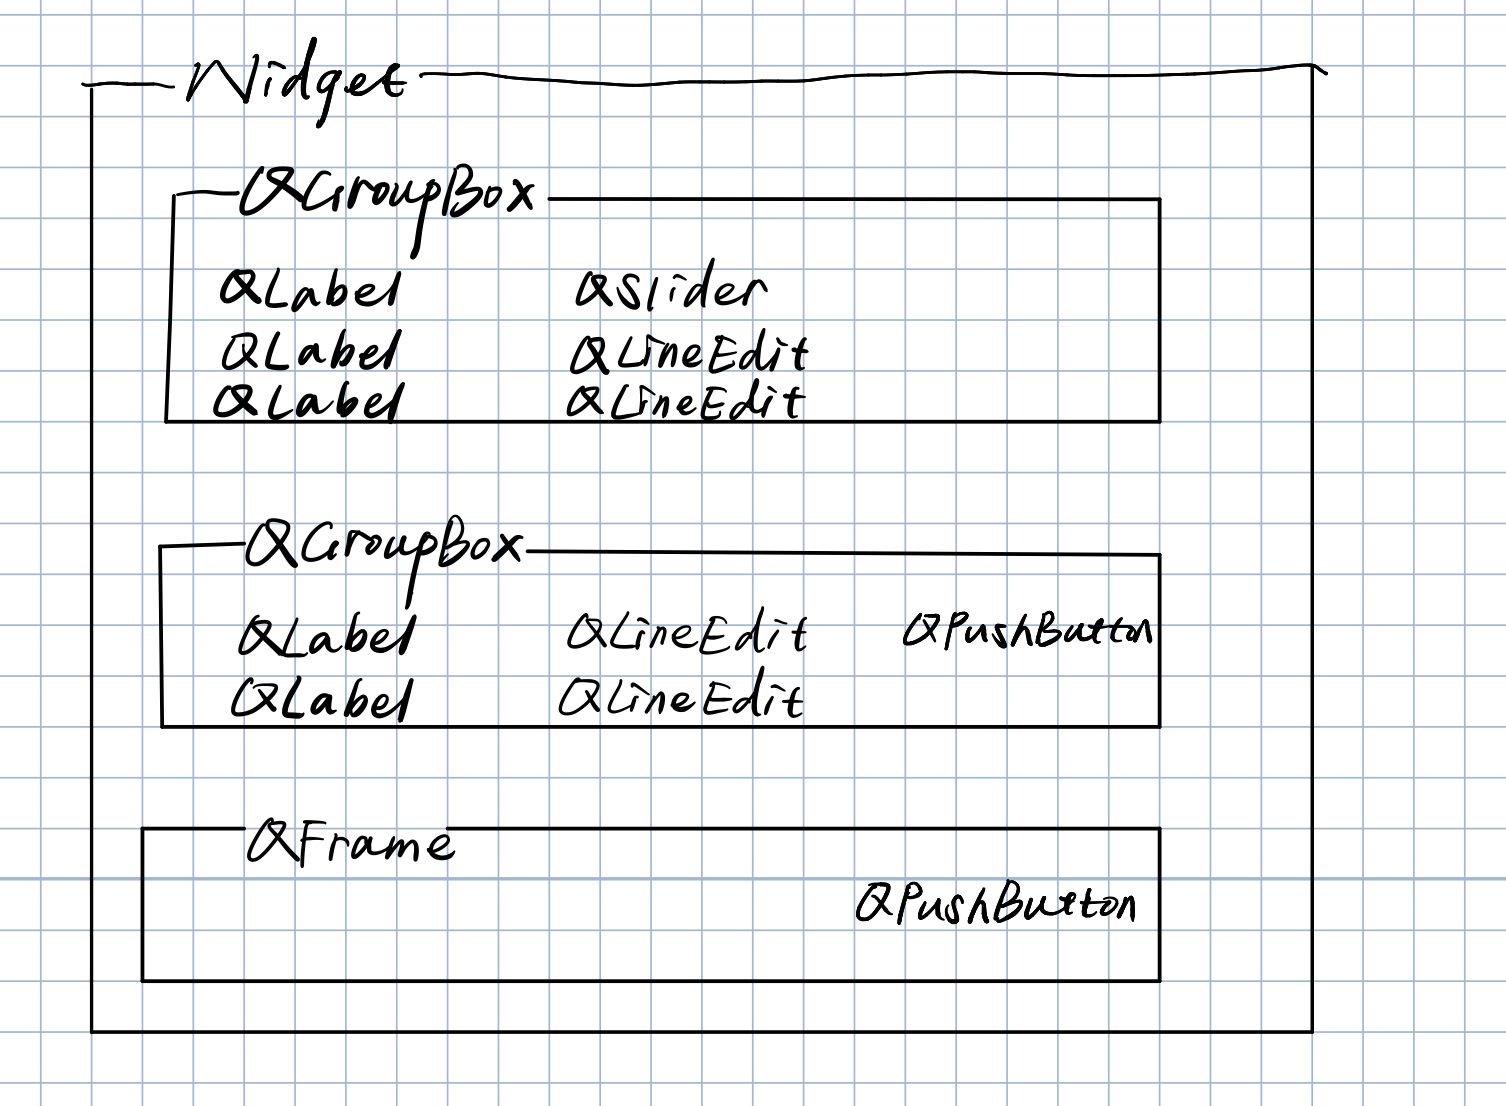 Widget
QGroupBox
QLabel QSlider
QLabel QLineEdit
QLabel QLineEdit
QGroupBox
QLabel QLineEdit QPushButton
QLabel QLineEdit
QFrame
QPushButton